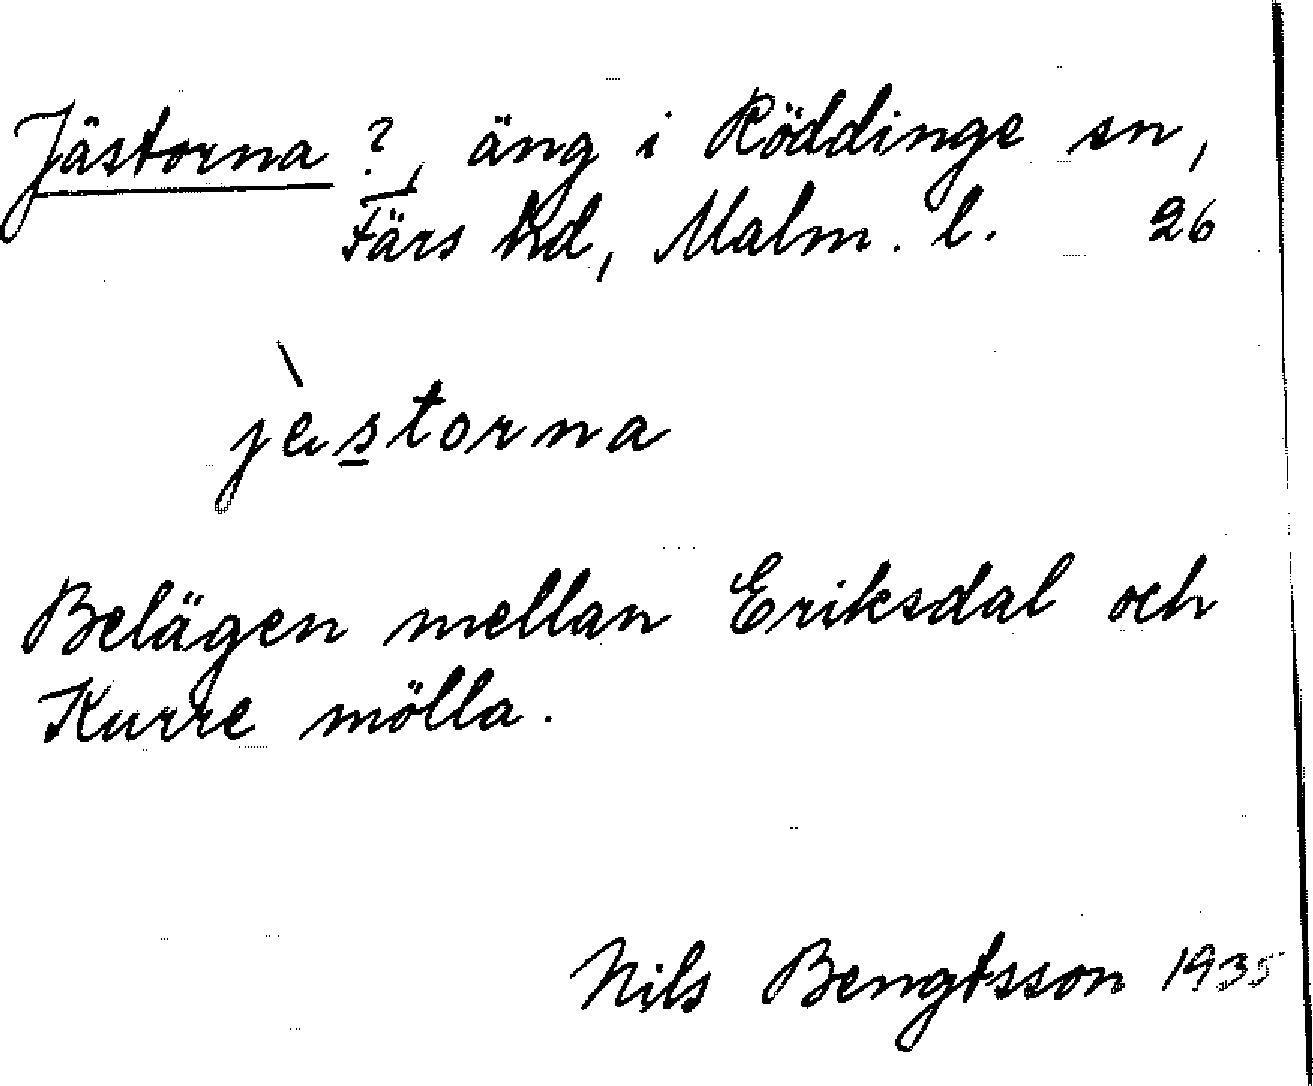 Jästorna ?, äng i Röddinge sn,
Färs hd, Malm. l. 26
jèstorna
Belägen mellan Eriksdal och
Kurre mölla.
Nils Bengtsson 1935